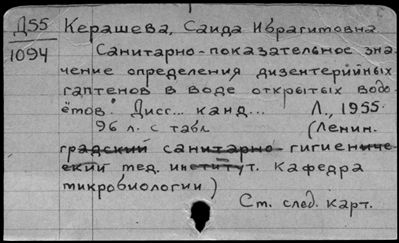 Д55 Керашева, Саида Ибрагимовна
1094 Санитарно-показательное зна-
чение определения дизентерийных
гаптенов в воде открытых водо-
ёмов. Дисс... канд... Л., 1955.
96 л. с табл. (Ленин.
градский санитарно-гигиениче-
ский мед. институт. Кафедра
микробиологии)
Ст. след. карт.